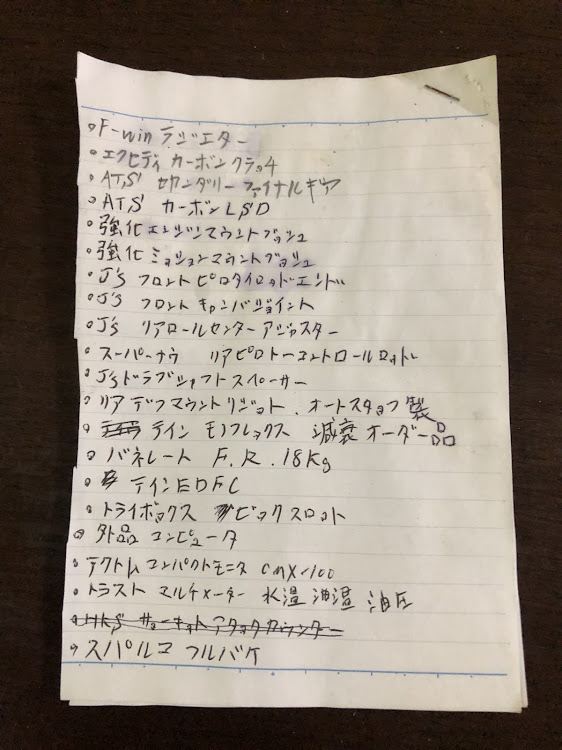 F-win ラジエター
エクセディ カーボンクラッチ
ATS セカンダリー ファイナルギア
ATS カーボンLSD
強化エンジンマウントブッシュ
強化ミッションマウントブッシュ
J's フロントピロタイロッドエンド
J's フロントキャンバジョイント
J's リアロールセンターアジャスター
スーパーナウ リアピロトーコントロールロット
J's ドラブシャフトスペーサー
リアデフマウントリジット. オートスタッフ製
テイン モノフレックス 減衰オーダー品
バネレート F.R.18Kg
テインEDFC
トライボックス ビックスロット
外品コンピュータ
テクトムコンパクトモニタ CMX-100
トラスト マルチメーター 水温 油温 油圧
HKS サーキットアタックカウンター
スパルコ フルバケ